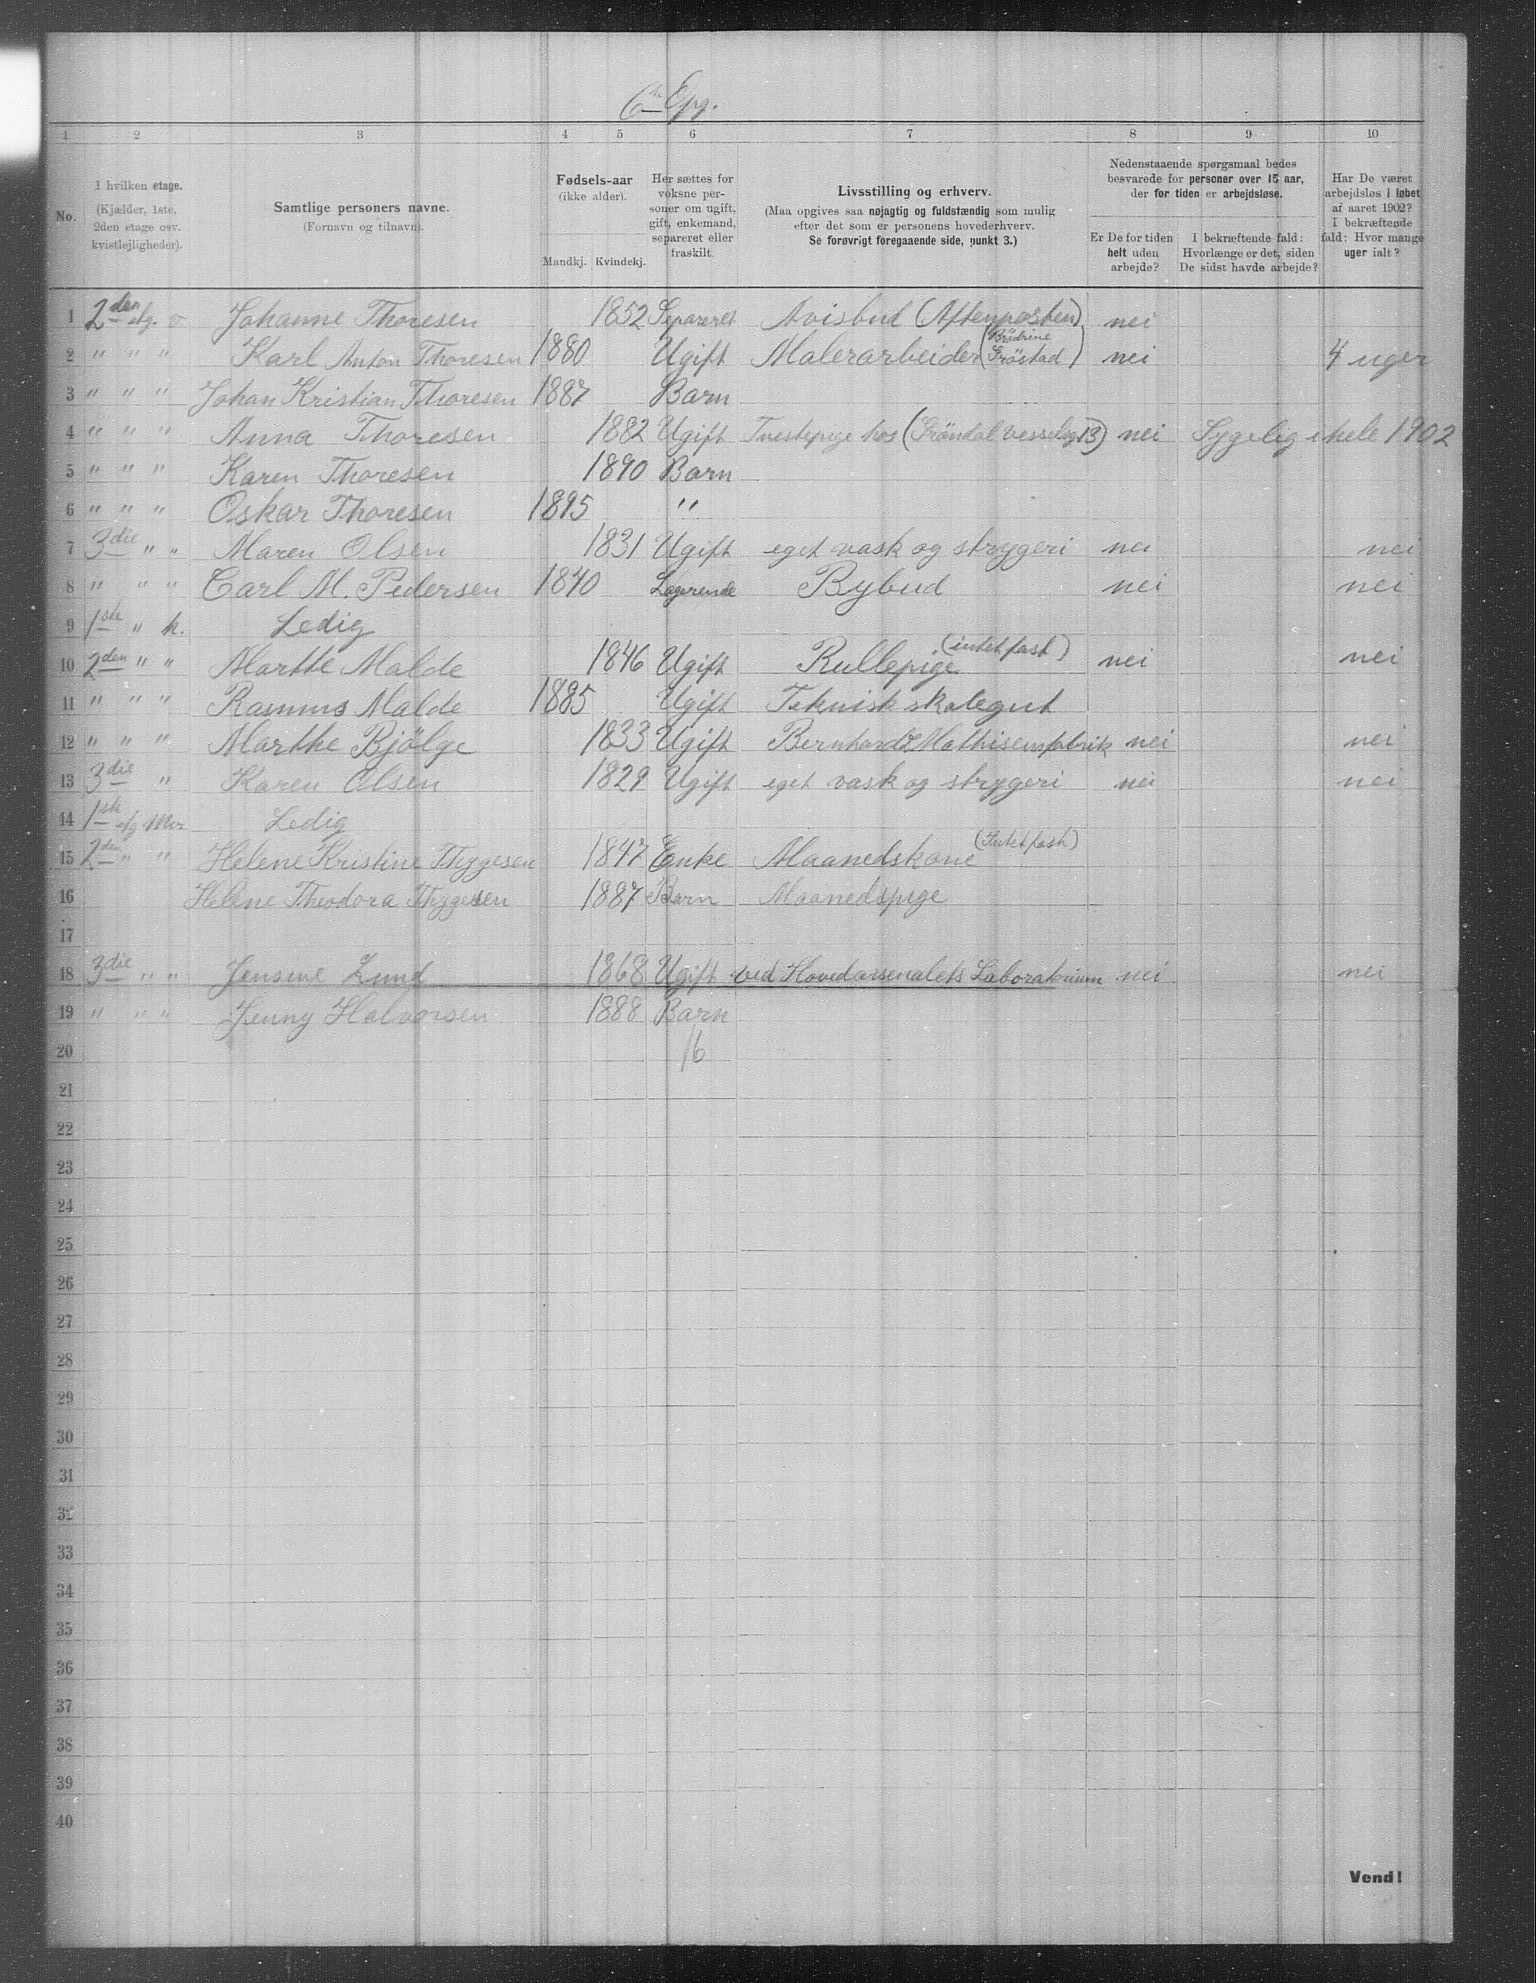 6te Opg.
1 2 3 4 5 6 7 8 9 10
No.
I hvilken etage. (Kjælder, 1ste, 2den etage osv. kvistlejligheder).
Samtlige personers navne. (Fornavn og tilnavn).
Fødsels-aar (ikke alder). Mandkj. Kvindekj.
Her sættes for voksne personer om ugift, gift, enkemand, separeret eller fraskilt.
Livsstilling og erhverv. (Maa opgives saa nøjagtig og fuldstændig som mulig efter det som er personens hovederhverv. Se forøvrigt foregaaende side, punkt 3.)
Nedenstaaende spørgsmaal bedes besvarede for personer over 15 aar, der for tiden er arbejdsløse.
Er De for tiden helt uden arbejde?
I bekræftende fald: Hvorlænge er det, siden De sidst havde arbejde?
Har De været arbejdsløs i løbet af aaret 1902? I bekræftende fald: Hvor mange uger ialt?
1 2den etg. v Johanne Thoresen 1852 Separeret Avisbud (Aftenposten) nei
2 " " " Karl Anton Thoresen 1880 Ugift Malerarbeider (Brödrine Fröstad) nei 4 uger
3 " " " Johan Kristian Thoresen 1887 Barn
4 " " " Anna Thoresen 1882 Ugift hos 13) nei Sygelig i hele 1902
5 " " " Karen Thoresen 1890 Barn
6 " " " Oskar Thoresen 1895 "
7 3die " " Maren Olsen 1831 Ugift eget vask og strygeri nei nei
8 " " " Carl M. Pedersen 1870 Logerende Bybud nei nei
9 1ste " h. Ledig
10 2den " " Marthe Malde 1846 Ugift Rullepige (intet fast) nei nei
11 " " " Rasmus Malde 1885 Ugift Teknisk skolegut
12 " " " Marthe Bjölge 1833 Ugift Bernhard L Mathisens fabrik nei nei
13 3die " Karen Olsen 1829 Ugift eget vask og strygeri nei nei
14 1ste etg Ledig
15 2den " " Helene Kristine Thygesen 1847 Enke Maanedskone (Intet fast)
16 Helene Theodora Thygesen 1887 Barn Maanedspige
17
18 3die " " Jensine Lund 1868 Ugift ved Hovedarsenalets Laboratorium nei nei
19 " " " Jenny Halvorsen 1888 Barn
20 16
21
22
23
24
25
26
27
28
29
30
31
32
33
34
35
36
37
38
39
40
Vend!